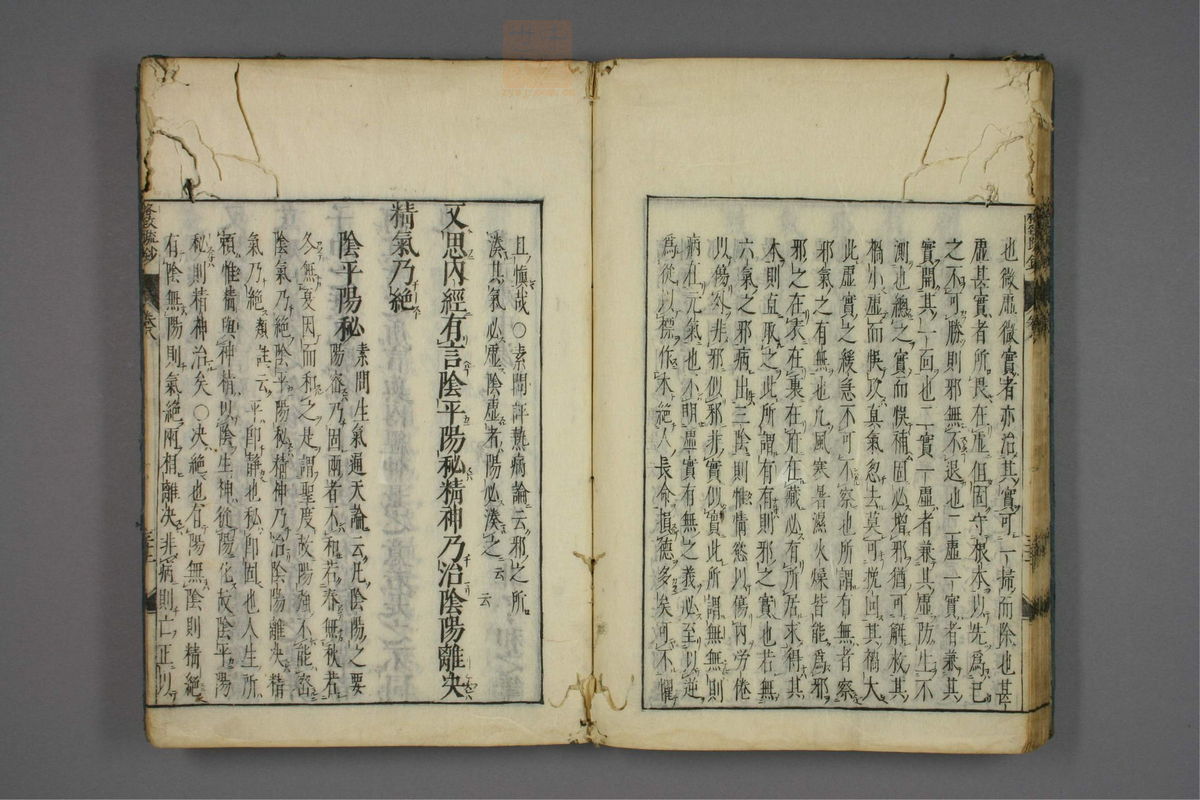 也微虛微實者亦治其實可一掃而除也甚
虛甚實者所畏在虛但固守根本以先為己
之不可勝則邪無不退也二虛一實者兼其
實開其一面也二實一虛者兼其虛防生不
測也總之實而悞補固必增邪猶可解救其
禍小虛而悞攻真氣忽去莫可挽回其禍大
此虛實之緩急不可不察也所謂有無者察
邪氣之有無也凡風寒暑濕火燥皆能為邪
邪之在表在裏在府在藏必有所居求得其
本則直取之此所謂有有則邪之實也若無
六氣之邪病出三陰則惟情慾以傷內勞倦
以傷外非邪似邪非實似實此所謂無無則
病在元氣也不明虛實有無之義必至以逆
為從以標作本絕人長命損德多矣可不懼
且慎哉○素問評熱病論云邪之所
湊其氣必虛陰虛者陽必湊之云云
又思內經有言陰平陽秘精神乃治陰陽離決
精氣乃絕
陰平陽秘素問生氣通天論云凡陰陽之要
陽密乃固兩者不和若春無秋若
冬無夏因而和之是謂聖度故陽強不能密
陰氣乃絕陰平陽秘精神乃治陰陽離決精
氣乃絕類註云平即靜也秘即固也人生所
賴惟精與神精以陰生神從陽化故陰平陽
秘則精神治矣○決絕也有陽無陰則精絕
有陰無陽則氣絕兩相離決非病則亡正以